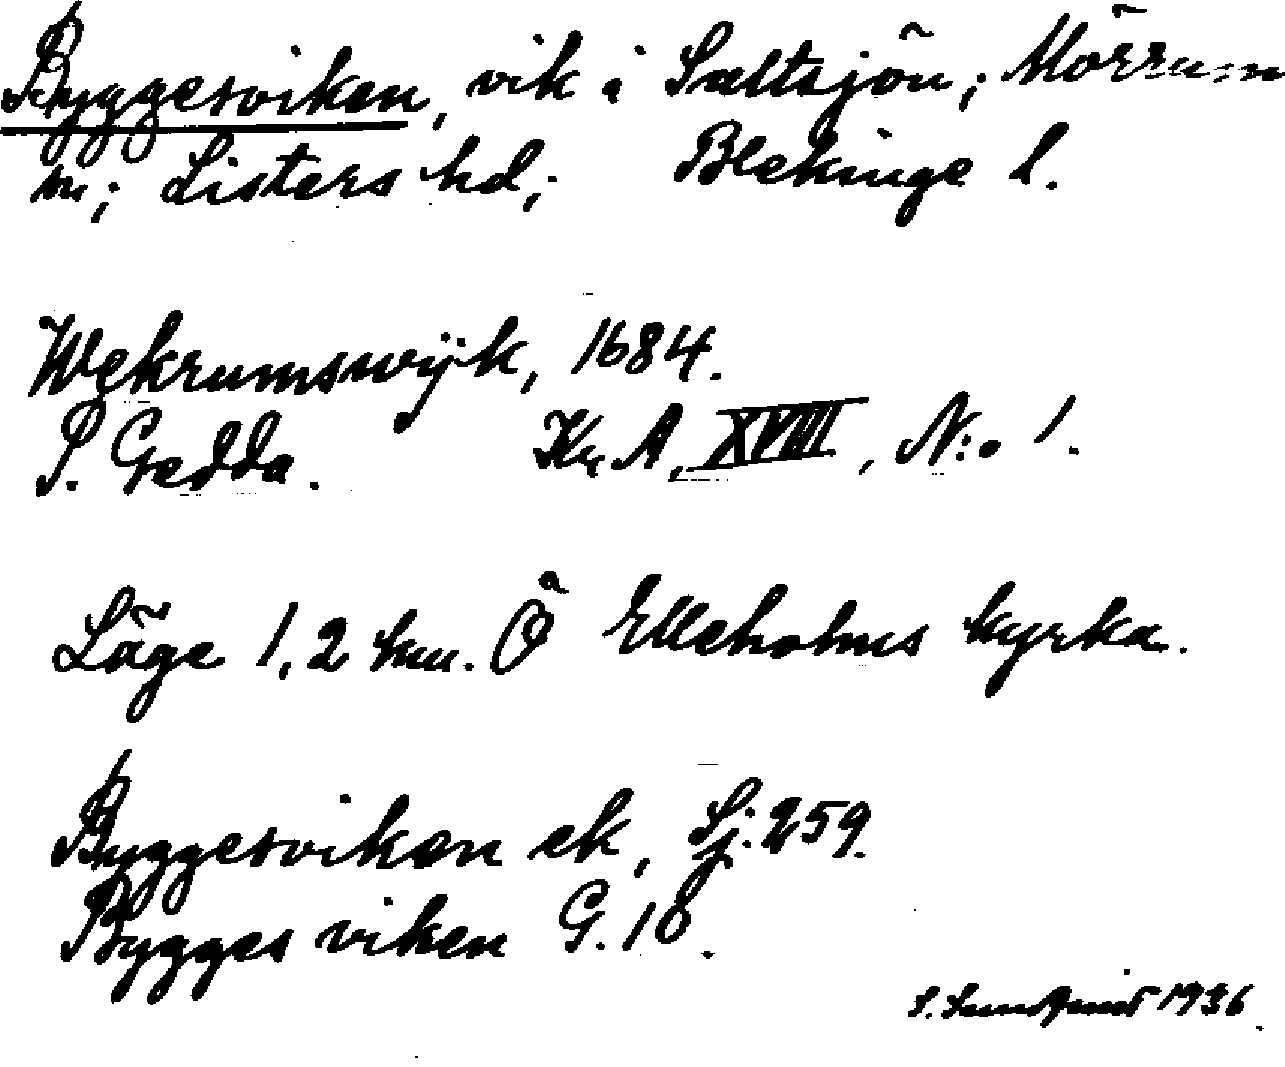 Byggesviken, vik i Saltsjön; Mörrum
sn; Listers hd; Blekinge l.
Wekrumswijk, 1684.
P. Gedda. Kr. A, XVIII, N:o 1.
Läge 1,2 km. Ö Elleholms kyrka.
Byggesviken ek, Sj. 259.
Bygges viken G. 10.
1936